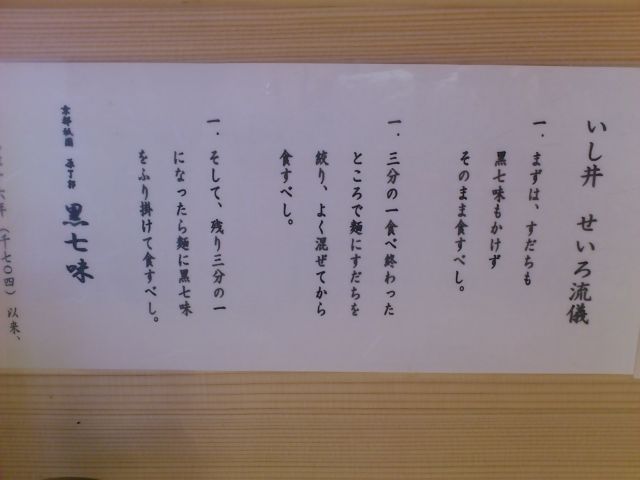 いし井 せいろ流儀
一．まずは、すだちも
黒七味もかけず
そのまま食すべし。
一．三分の一食べ終わった
ところで麺にすだちを
絞り、よく混ぜてから
食すべし。
一．そして、残り三分の一
になったら麺に黒七味
をふり掛けて食すべし。
京都祇園 原了郭 黒七味
六年（千七〇四）以来、